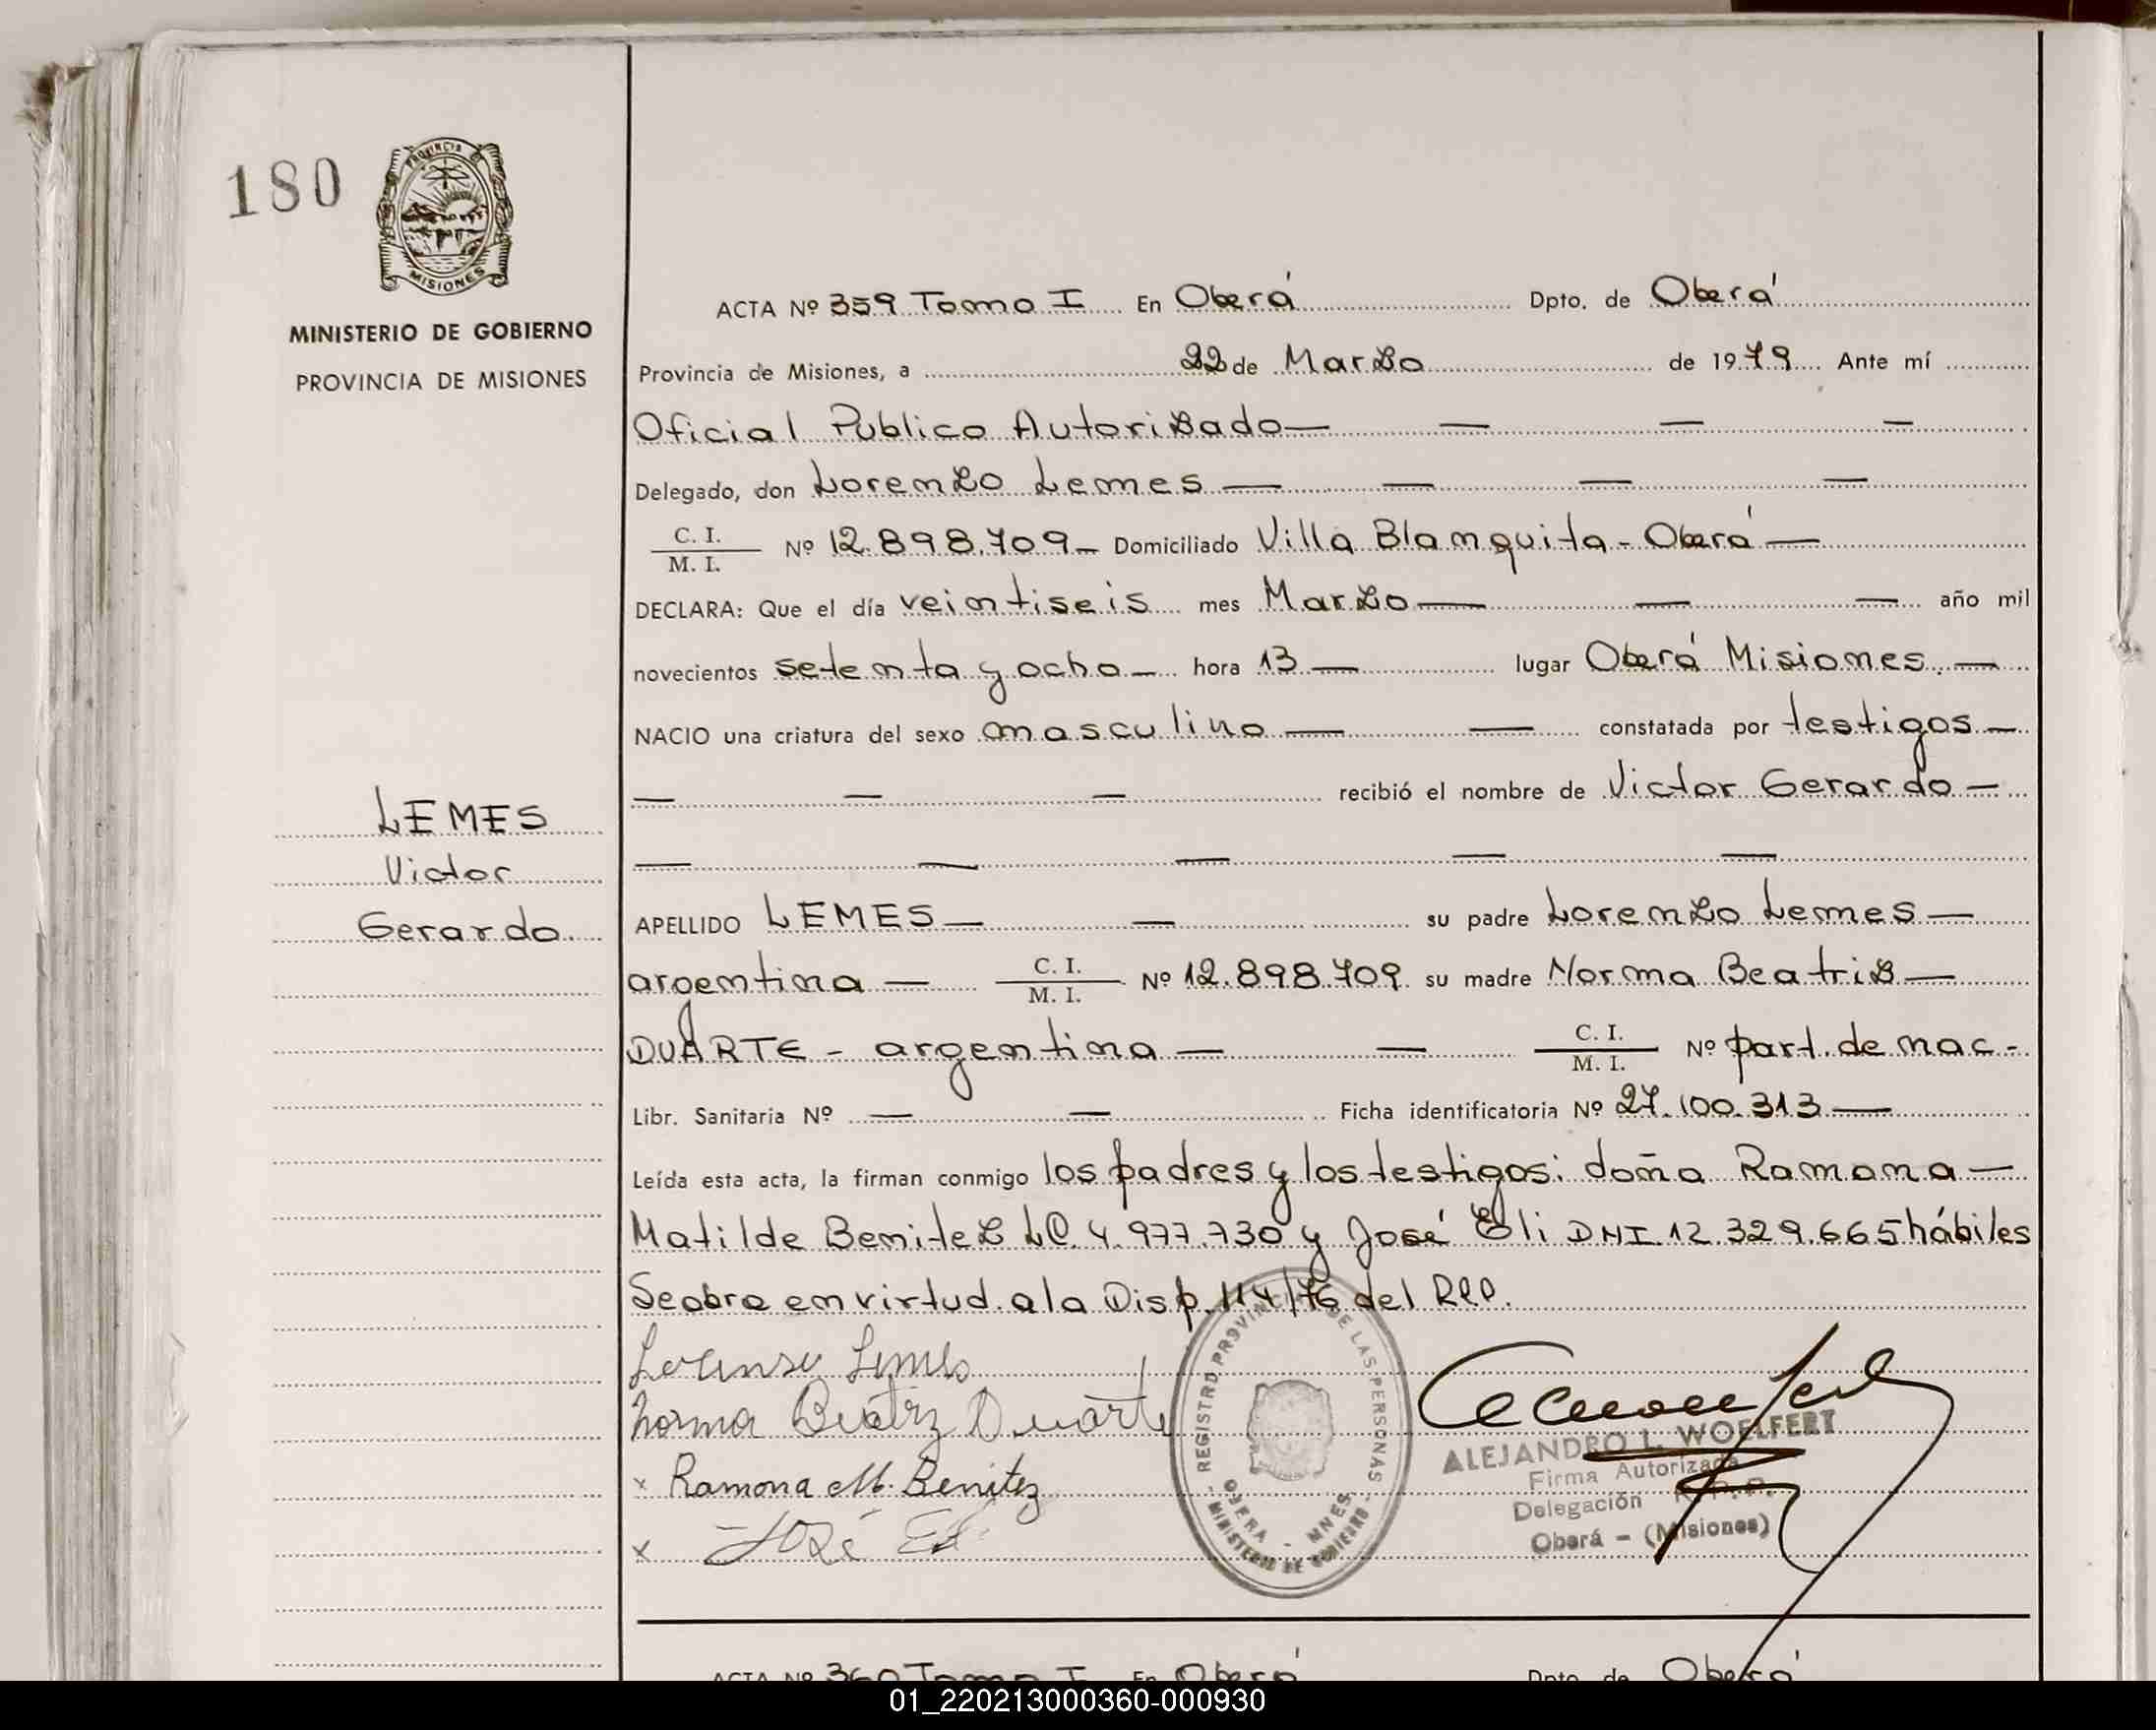 180
PROVINCIA DE
MISIONES
MINISTERIO DE GOBIERNO
PROVINCIA DE MISIONES
LEMES
Victor
Gerardo.
ACTA Nº 359 Tomo I En Oberá Dpto. de Oberá
Provincia de Misiones, a 22 de Marzo de 1979 Ante mí
Oficial Publico Autorizado —
Delegado, don Lorenzo Lemes —
C. I. / M. I. Nº 12.898.709 — Domiciliado Villa Blanquita - Oberá —
DECLARA: Que el día veintiseis mes Marzo — año mil
novecientos setenta y ocho — hora 13 — lugar Oberá Misiones. —
NACIO una criatura del sexo masculino — constatada por testigos —
— recibió el nombre de Victor Gerardo —
APELLIDO LEMES — su padre Lorenzo Lemes —
argentina — C. I. / M. I. Nº 12.898.709 su madre Norma Beatriz —
DUARTE - argentina — C. I. / M. I. Nº part. de nac -
Libr. Sanitaria Nº — Ficha identificatoria Nº 27.100.313 —
Leída esta acta, la firman conmigo los padres y los testigos: doña Ramona —
Matilde Benitez LC. 4.977.730 y José Eli DNI 12.329.665 hábiles
Seobra en virtud a la Disp. 114/76 del RPP.
Lorenso Lemes
Norma Beatriz Duarte
x Ramona M. Benitez
x José El
REGISTRO PROVINCIAL DE LAS PERSONAS
OBERA - MNES.
- MINISTERIO DE GOBIERNO -
ALEJANDRO L. WOELFERT
Firma Autorizada
Delegación R. P. P.
Oberá - (Misiones)
ACTA Nº 360 Tomo I En Oberá Dpto. de Oberá
01_220213000360-000930